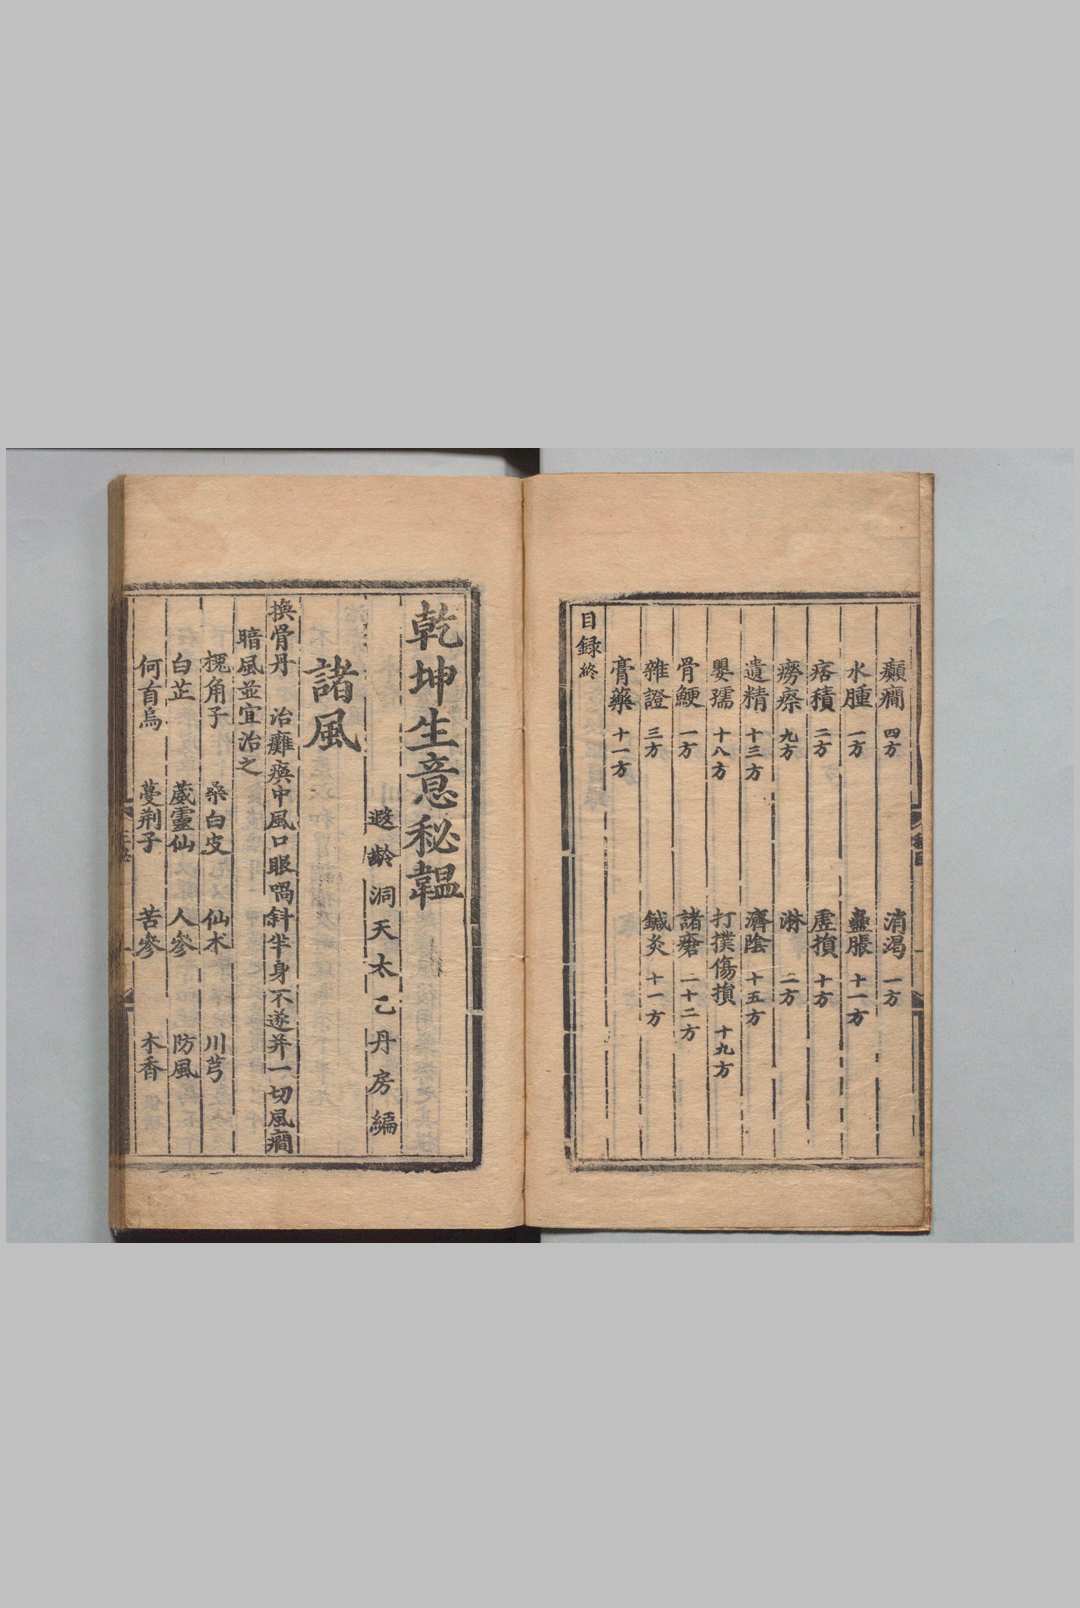 癲癎 四方 消渴 一方
水腫 一方 蠱脹 十一方
痞積 二方 虛損 十方
癆瘵 九方 淋 二方
遺精 十三方 濟陰 十五方
嬰孺 十八方 打撲傷損 十九方
骨鯁 一方 諸瘡 二十二方
雜證 三方 鍼灸 十一方
膏藥 十一方
目録終
乾坤生意秘韞
遐齡洞天太乙丹房編
諸風
換骨丹 治癱瘓中風口眼喎斜半身不遂并一切風癎
暗風並宜治之
槐角子 桑白皮 仙术 川芎
白芷 葳靈仙 人參 防風
何首烏 蔓荆子 苦參 木香